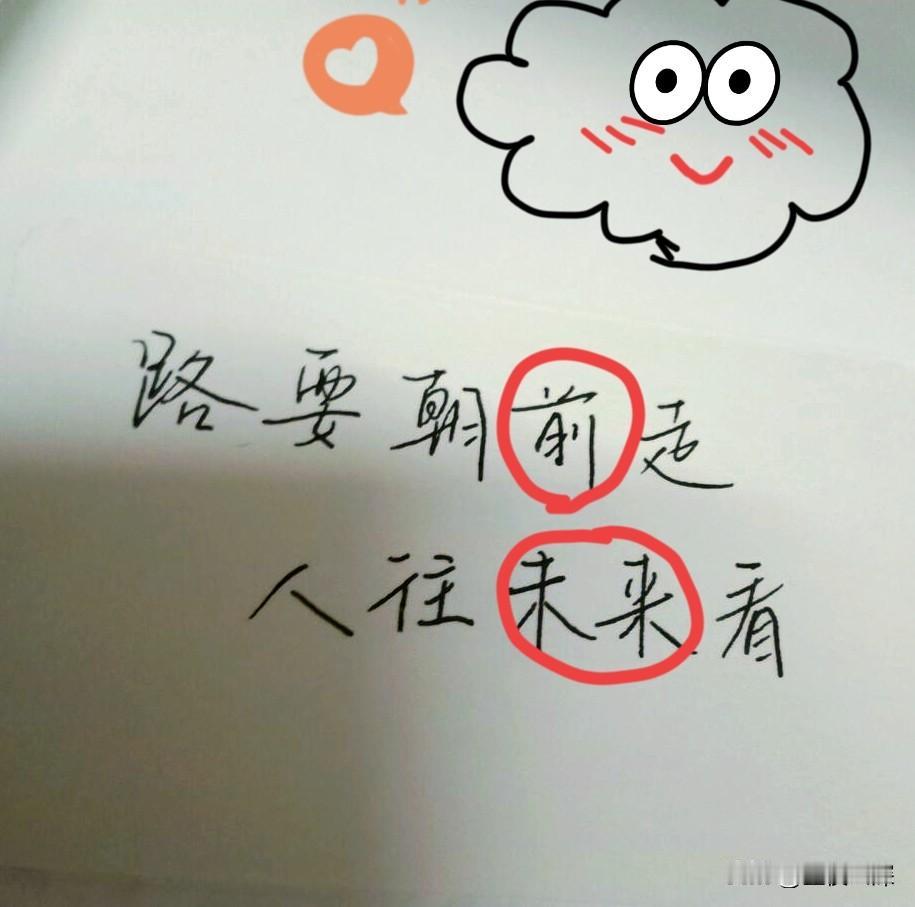 路要朝前走
人往未来看